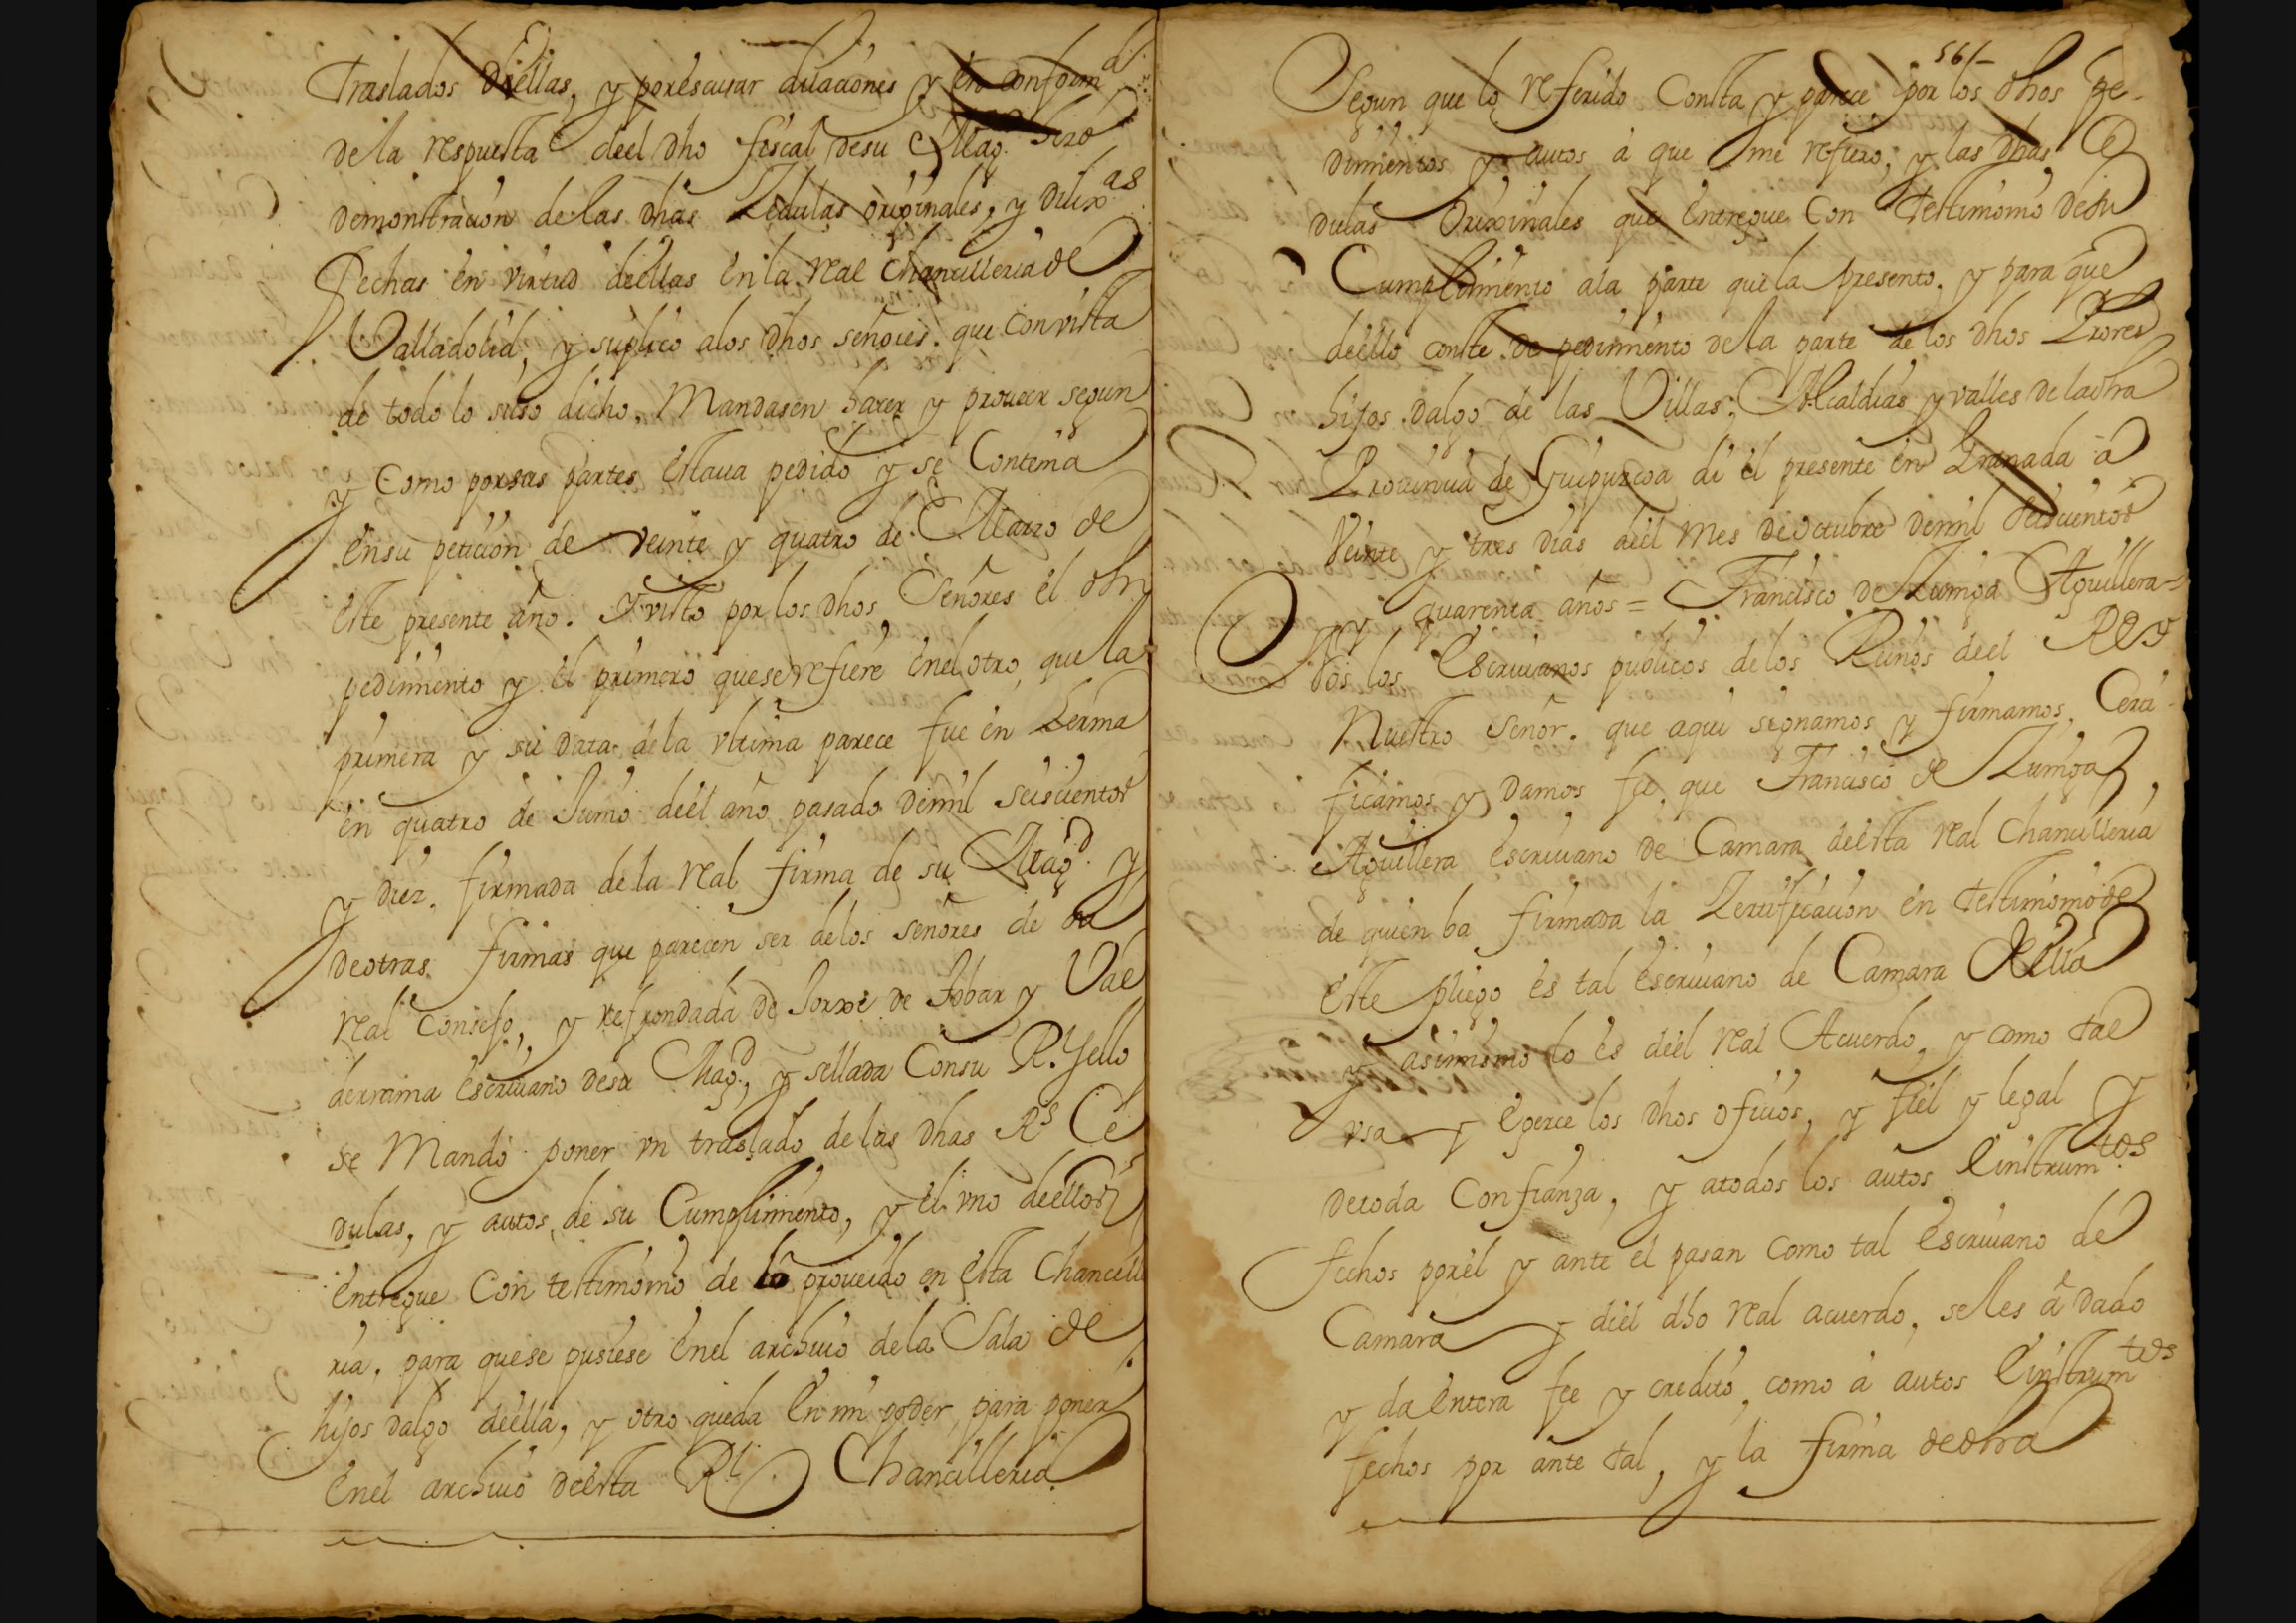 Traslados deellas, y por escusar dilaciones y en conformd
de la respuesta deel dho fiscal de su Magd hizo
demonstracion de las dhas Zedulas originales, y dilixas
fechas en virtud deellas en la real chancilleria de
Valladolid, y suplico a los dhos señores. que con vista
de todo lo suso dicho, Mandasen hacer y proueer segun
y Como por sus partes estaua pedido y se Contenia
en su peticion de veinte y quatro de Marzo de
este presente año. y visto por los dhos Señores el dho
pedimiento y el primero que se refiere en el otro, que la
primera y su data de la vltima parece fue en Lerma
en quatro de Junio deel año pasado de mil seiscientos
y diez. firmada de la real firma de su Magd. y
de otras firmas que parecen ser de los señores de su
real consejo, y refrendada de Jorxe de tobar y Val
derrama escriuano de su Magd, y sellada Con su Rl. sello
se Mandò poner vn traslado de las dhas Rs Ce
dulas, y autos de su Cumplimiento, y el vno deellos
entregue Con testimonio de lo proueido en esta Chancille
ria. para que se pusiese en el archiuo de la Sala de
hijos dalgo deella, y otro queda en mi poder, para poner
en el archiuo deesta Rl. Chancilleria
561
Segun que lo referido Consta y parece por los dhos pe-
dimientos y autos a que me refiero, y las dhas Ce
dulas Orixinales que entregue Con testimonio de su
Cumplimiento a la parte que la presento. y para que
deello conste de pedimiento de la parte de los dhos
hijos dalgo de las Villas, Alcaldias y valles de la dha
Prouincia de Guipuzcoa di el presente en Granada a
Veinte y tres dias deel mes de octubre de mil seiscientos
y quarenta años = Francisco de Zuniga Aguillera =
Nos los Escriuanos publicos de los Reinos deel Rey
Nuestro Señor. que aqui signamos y firmamos, Certi-
ficamos y damos fee, que Francisco de Zuniga,
Aguillera escriuano de Camara deesta real chancilleria
de quien ba firmada la Zertificacion en testimonio de
este pliego es tal escriuano de Camara de ella
y asimismo lo es deel real Acuerdo, y como tal
vsa y egerce los dhos oficios, y fiel y legal y
de toda Confianza, y a todos los autos e instrumtos
fechos por el y ante el pasan como tal escriuano de
Camara y deel dho real acuerdo, se les à dado
y da entera fee y credito, como à autos e instrumtos
fechos por ante tal, y la firma de dha